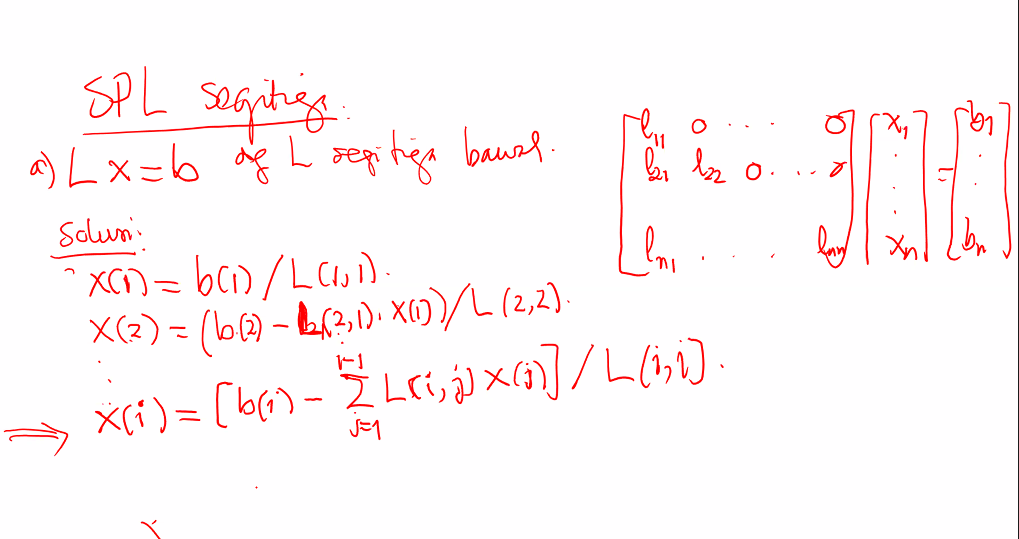 SPL segitiga.
a) L x = b dg L segitiga bawah.
[ l11 0 ... 0 ] [ x1 ] = [ b1 ]
[ l21 l22 0 ... 0 ] [ . ] [ . ]
[ ln1 . . . . lnn ] [ xn ] [ bn ]
Solusi:
x(1) = b(1) / L(1,1).
x(2) = (b(2) - L(2,1). x(1)) / L(2,2).
⋮
⇒ x(i) = [b(i) - ∑_{j=1}^{i-1} L(i,j) x(j)] / L(i,i).